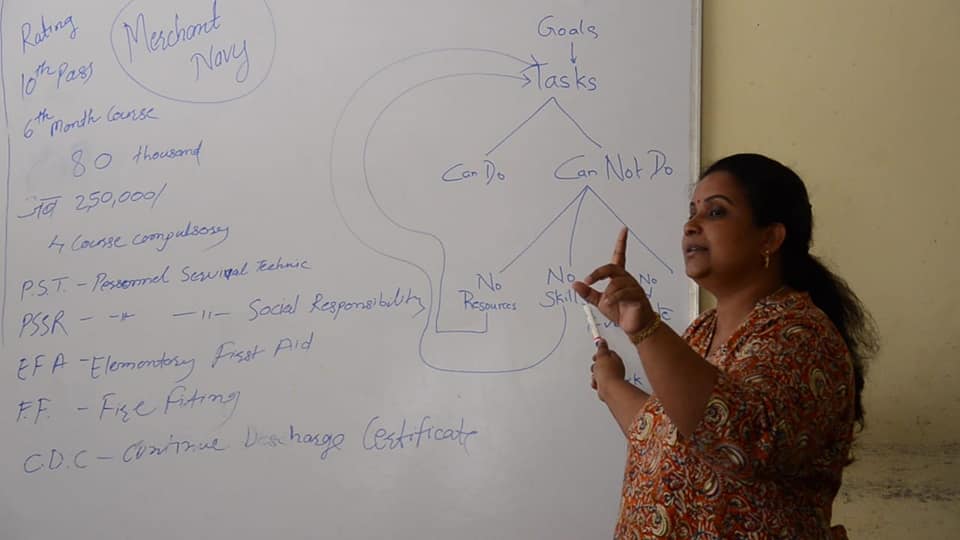 Rating
Merchant
Navy
10th Pass
6th Month Course
80 thousand
2,50,000/
4 Course compulsory
P.S.T. - Personnel Servival Technic
PSSR - -"- -"- Social Responsibility
EFA - Elementory First Aid
F.F. - Fire Fiting
C.D.C - Continue Descharge Certificate
Goals
Tasks
Can Do
Can Not Do
No
Resources
No
No